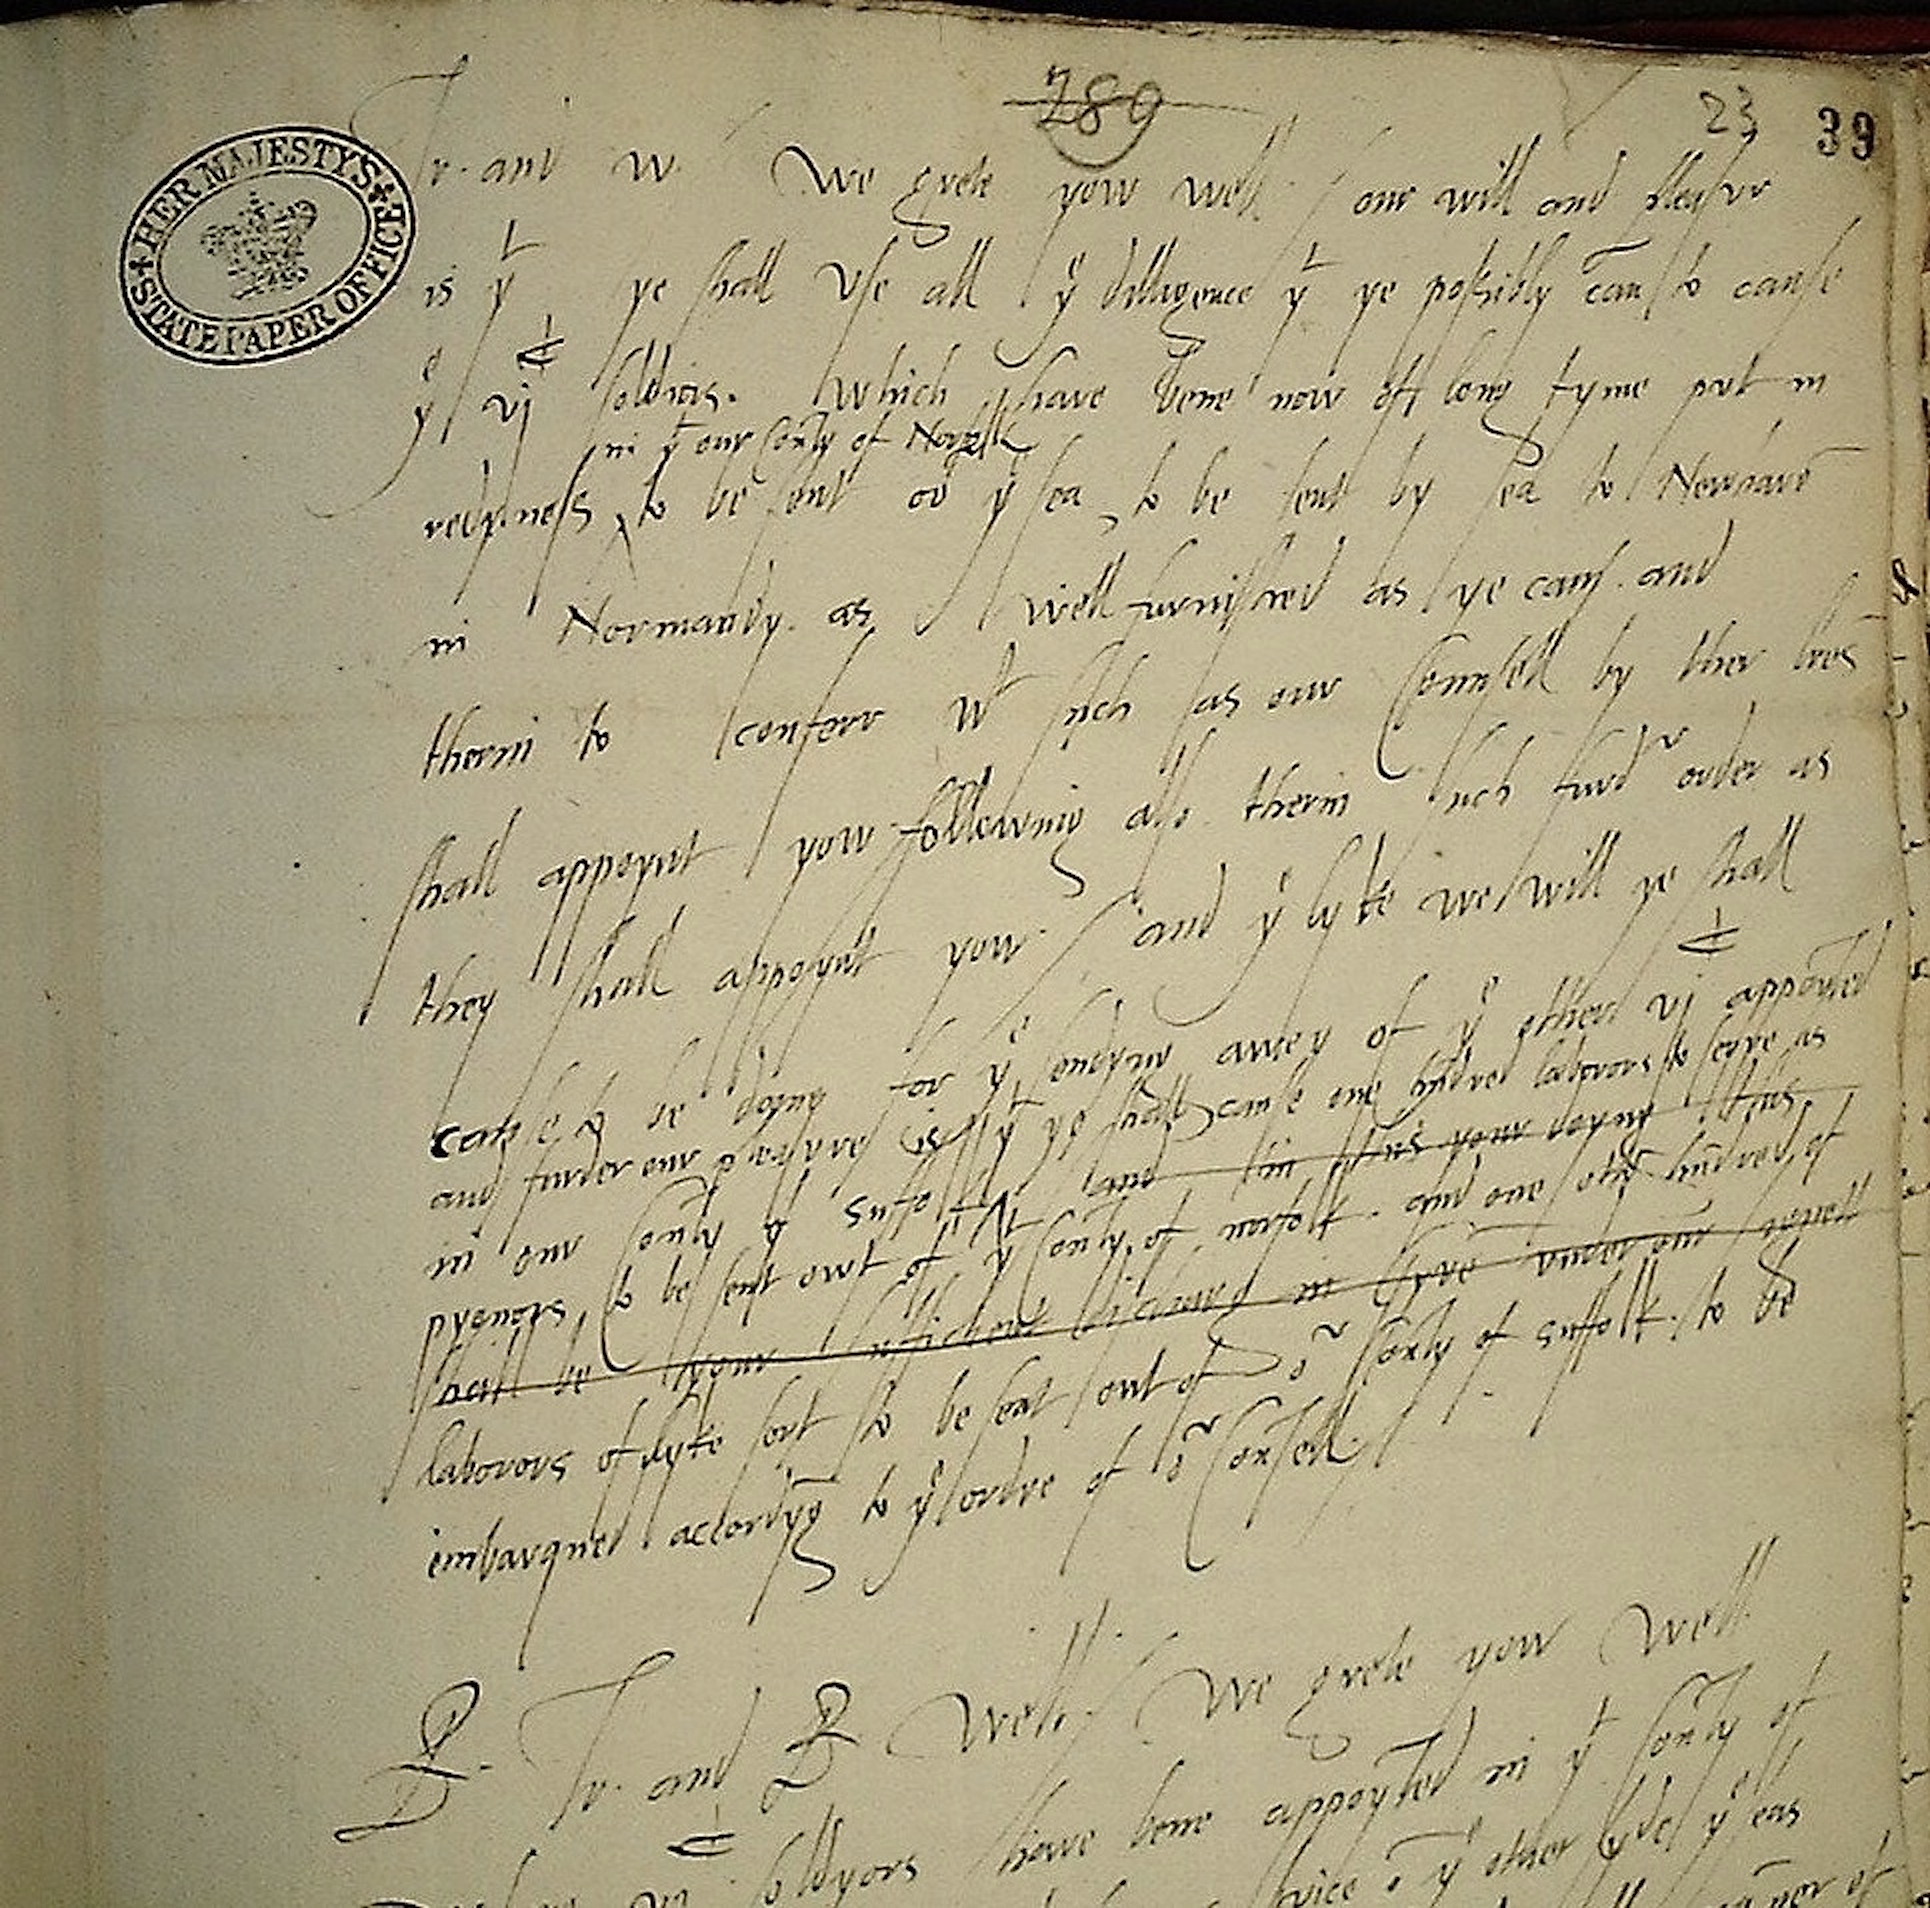 289
23 39
HER MAJESTYS STATE PAPER OFFICE
Tr. and W. We grete yow well / our will and pleasur
is yt ye shall use all ye dilligence yt ye possibly can to cause
ye vjC soldiors. which have bene now off long tyme put in
in yt our Conty of Norfolk
redyness to be sent over ye sea, to be sent by sea to Newhave
in Normandy. as well furnished as ye can. and
therin to conferr wt such as our Counsell by ther lres
shall appoynt yow following also therin such furder order as
they shall appoynt yow. / and ye lyke we will ye shall
cause to be doyng for ye sendyng awey of ye other vjC appoynted
and furder our pleasure is yt ye shall cause one hundred laborors to serve as
in our Conty of Suffolk and in this your doyng thes
pyonors, to be sent owt of yt Conty of norfolk. and one other hundred of
shall be your sufficient discharg in under our
laborors of lyke sort to be sent out of or Conty of Suffolk. to be
embarqued accordyng to ye ordre of or Consell.
Tr. and B. Well. / We grete yow well
vjC soldyors have bene appoynted in yt Conty of
ye other syde ye seas